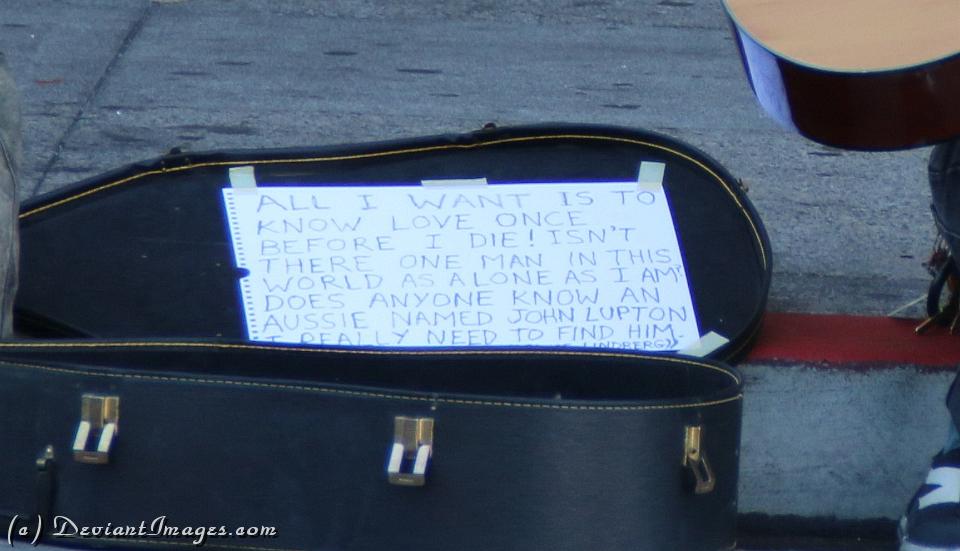 ALL I WANT IS TO
KNOW LOVE ONCE
BEFORE I DIE! ISN'T
THERE ONE MAN IN THIS
WORLD AS ALONE AS I AM?
DOES ANYONE KNOW AN
AUSSIE NAMED JOHN LUPTON
I REALLY NEED TO FIND HIM.
LINDBERG)
(a) DeviantImages.com